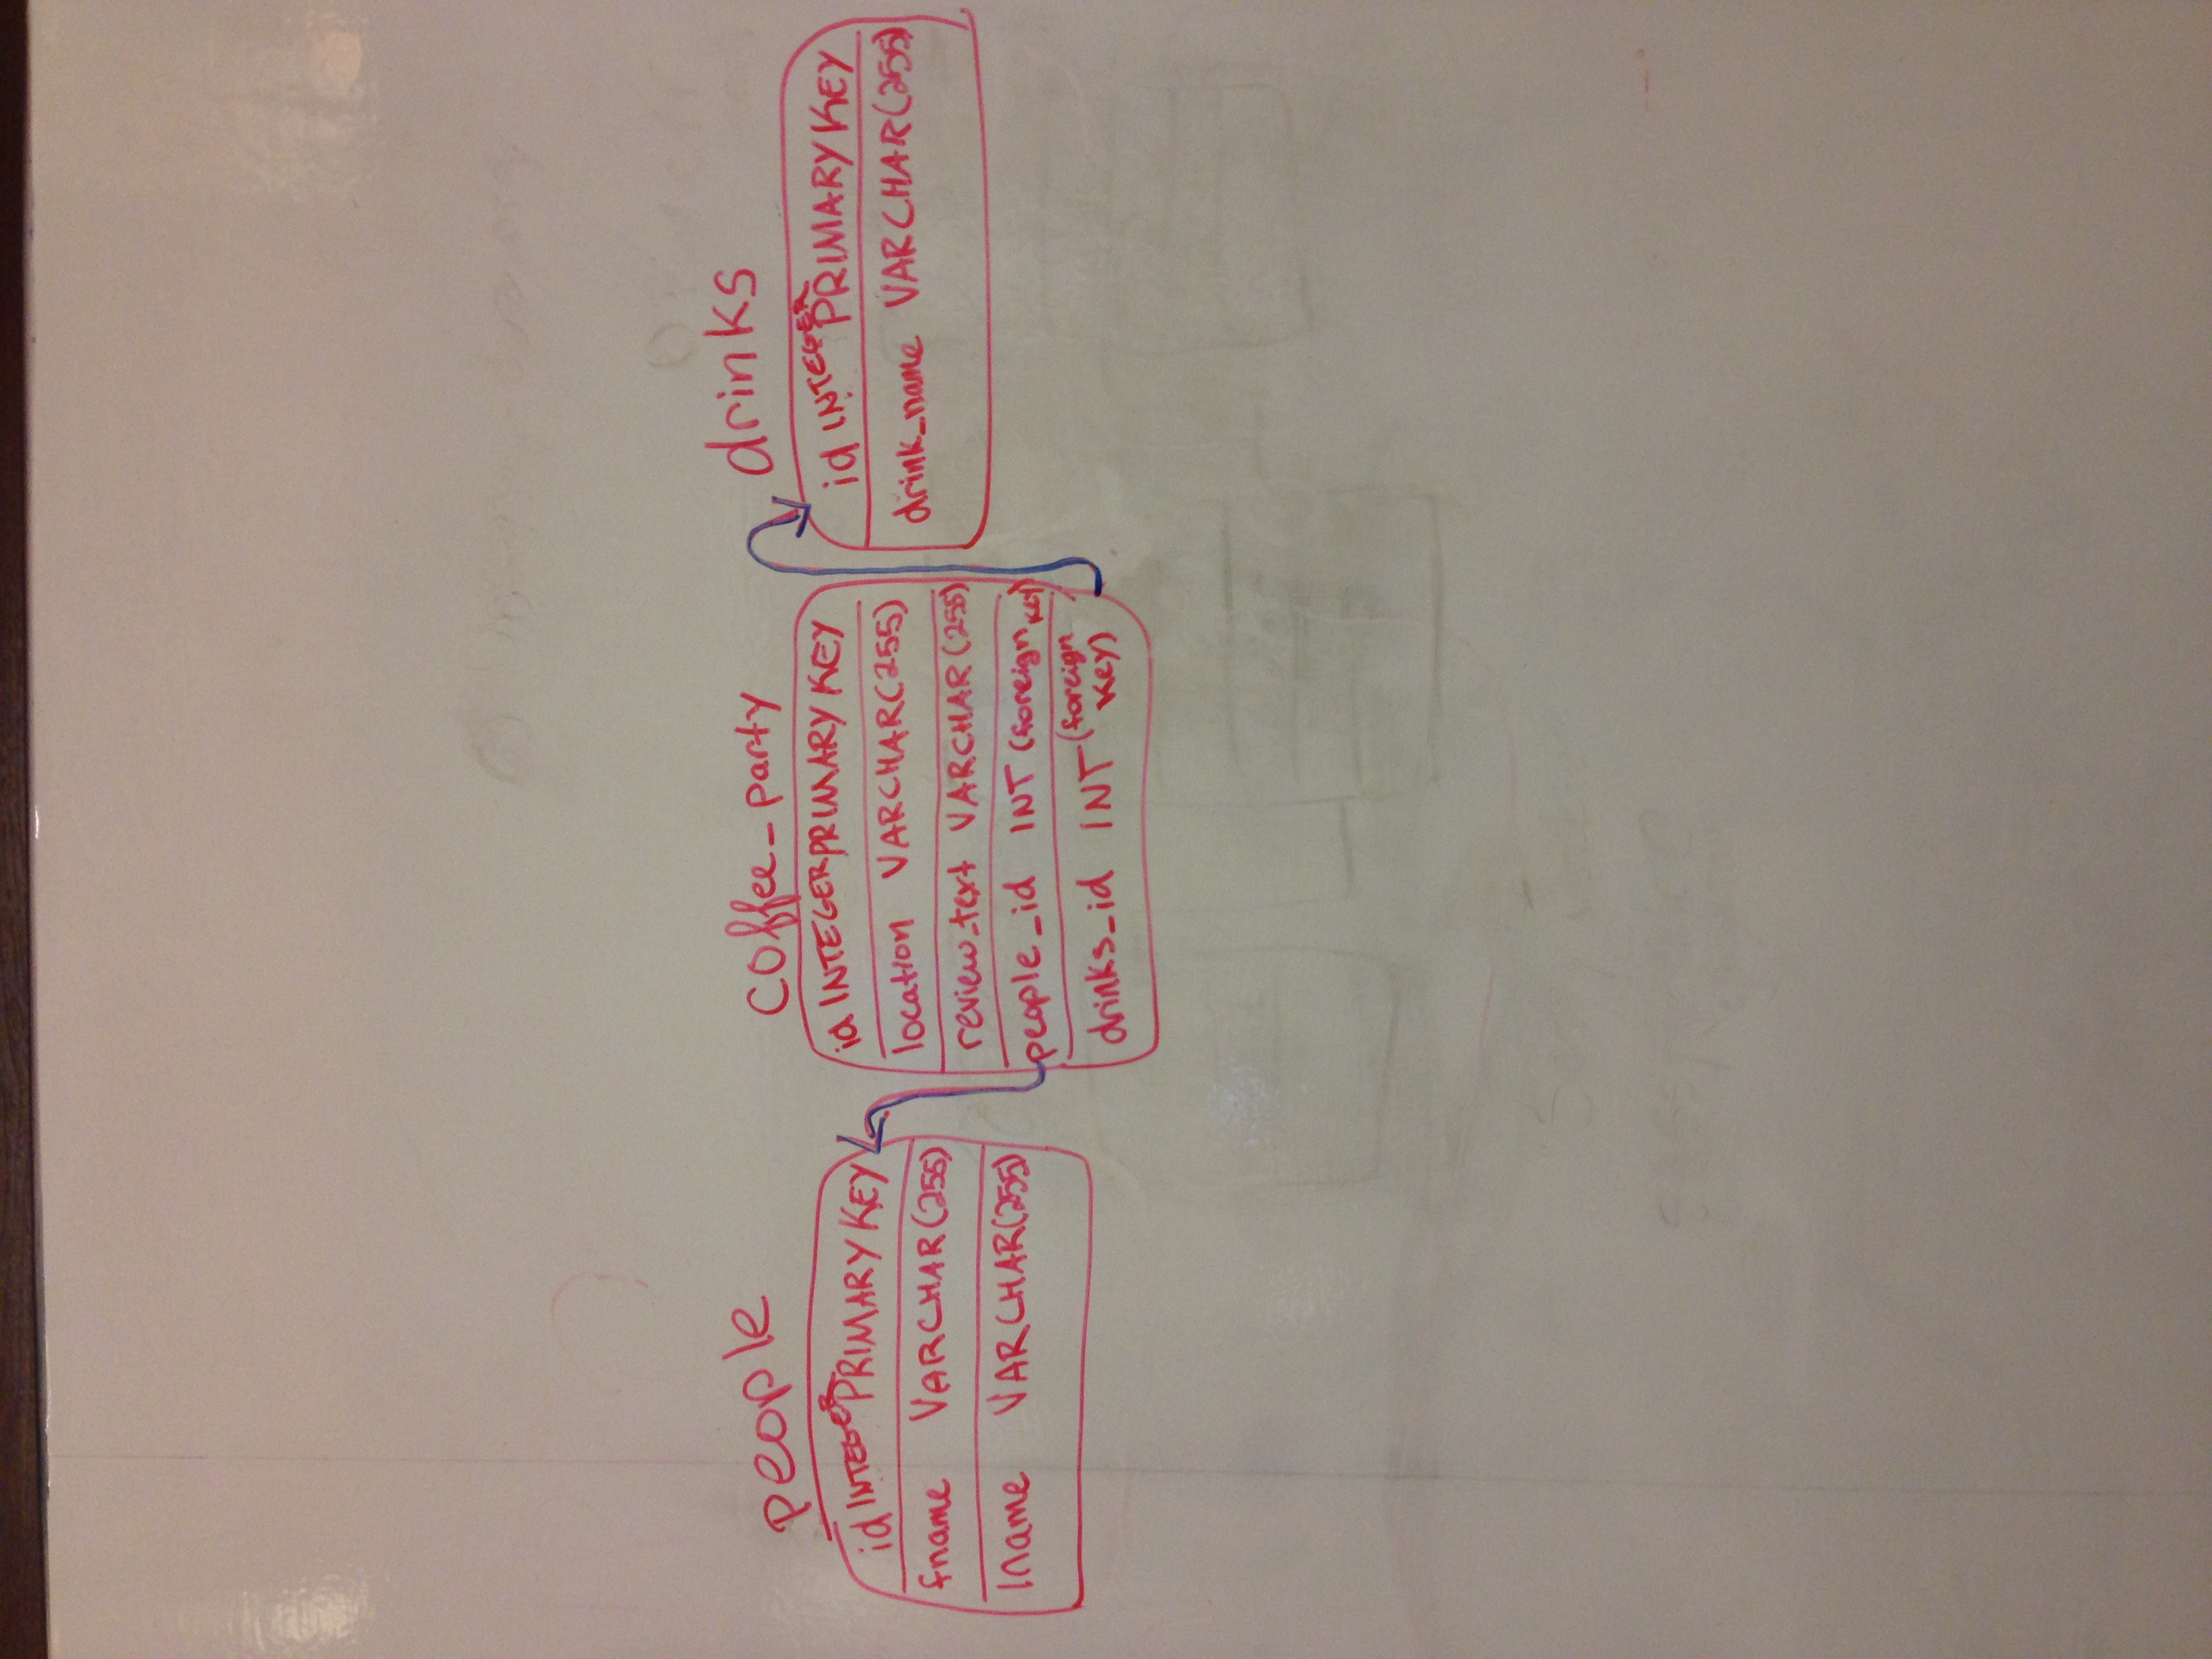 people
id INTEGER PRIMARY KEY
fname VARCHAR(255)
lname VARCHAR(255)
coffee_party
id INTEGER PRIMARY KEY
location VARCHAR(255)
review_text VARCHAR(255)
people_id INT (foreign key)
drinks_id INT (foreign key)
drinks
id INTEGER PRIMARY KEY
drink_name VARCHAR(255)